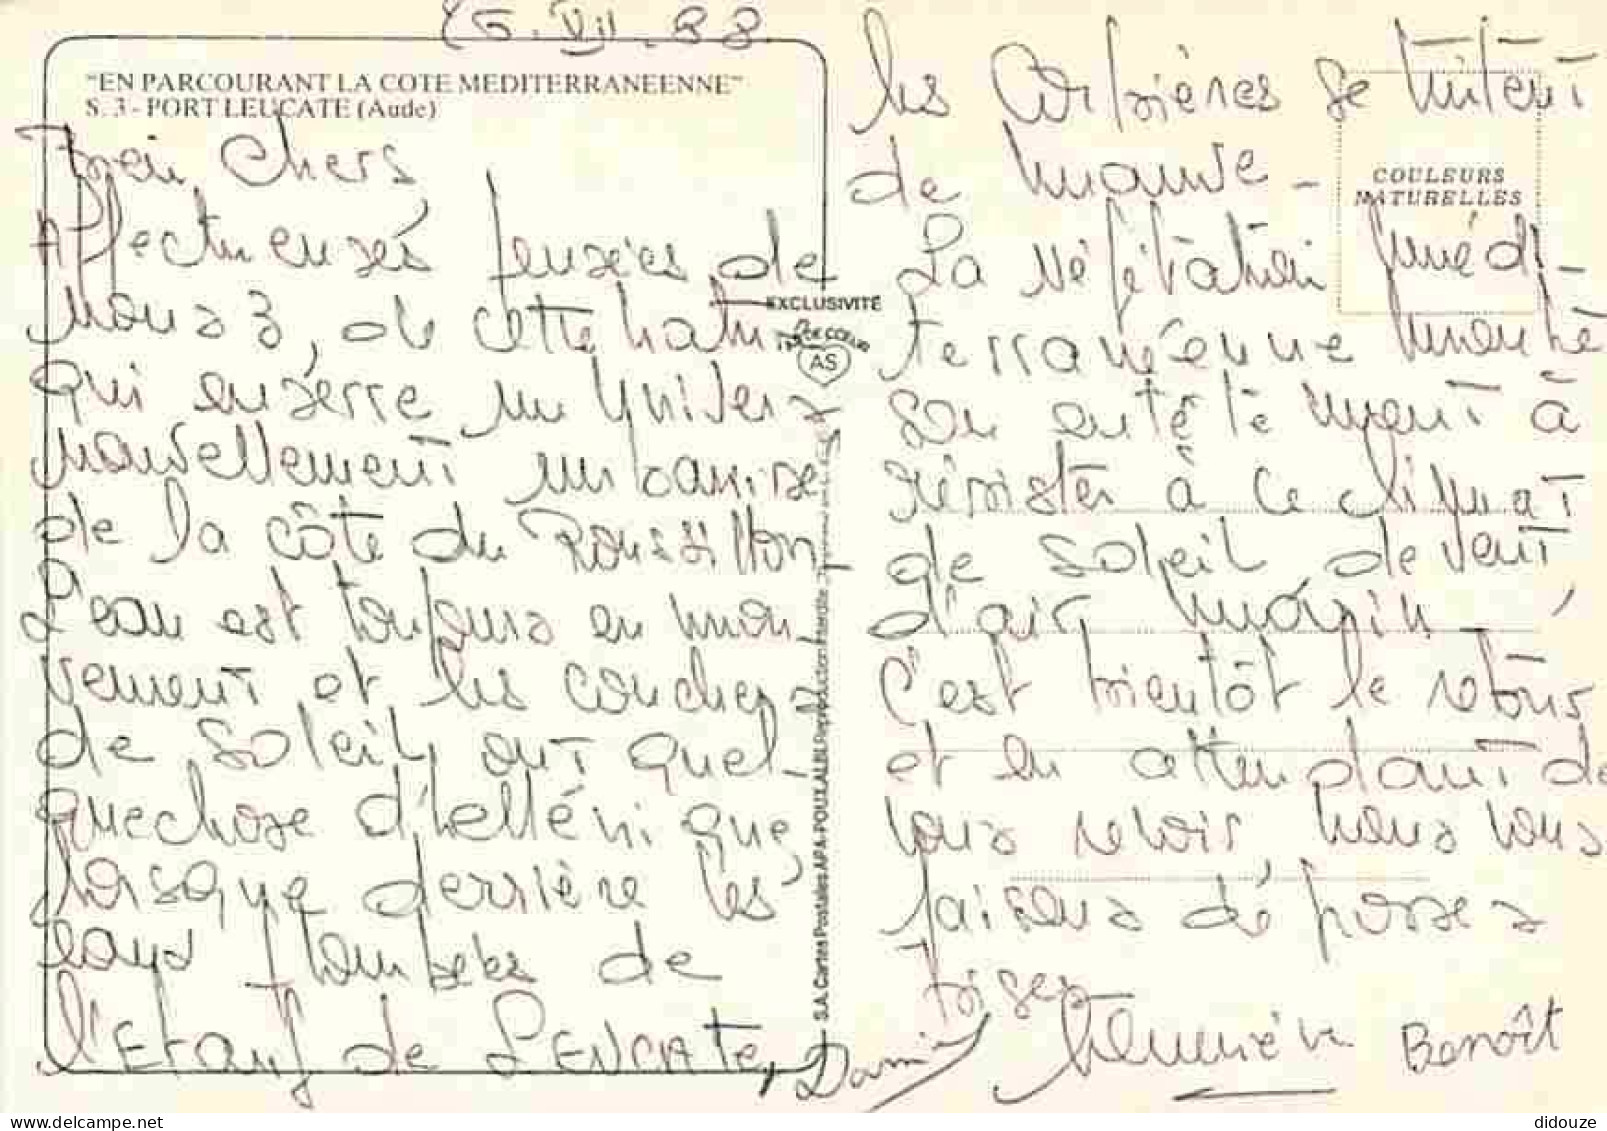 26.VII.88
"EN PARCOURANT LA COTE MEDITERRANEENNE"
S. 3 - PORT LEUCATE (Aude)
Chers
Affectueuses pensées de
nous 3, de cette
qui enserre un univers
nouvellement urbanisé
de la côte du Roussillon,
L'eau est toujours en mou-
vement et les couchers
de soleil, ont quel-
quechose d'hellénique
lorsque derrière les
eaux de
l'Etang de LEUCate,
les Corbières se teintent
de mauve -
La végétation médi-
terranéenne montre
son entêtement à
résister à ce climat
de soleil de vent
d'air marin,
C'est bientôt le retour
et en attendant de
vous revoir nous vous
faisons de grosses
bises
Damien Geneviève Benoît
COULEURS
NATURELLES
EXCLUSIVITÉ
AS
S.A. Cartes Postales APA-POUX ALBI Reproduction interdite
didouze